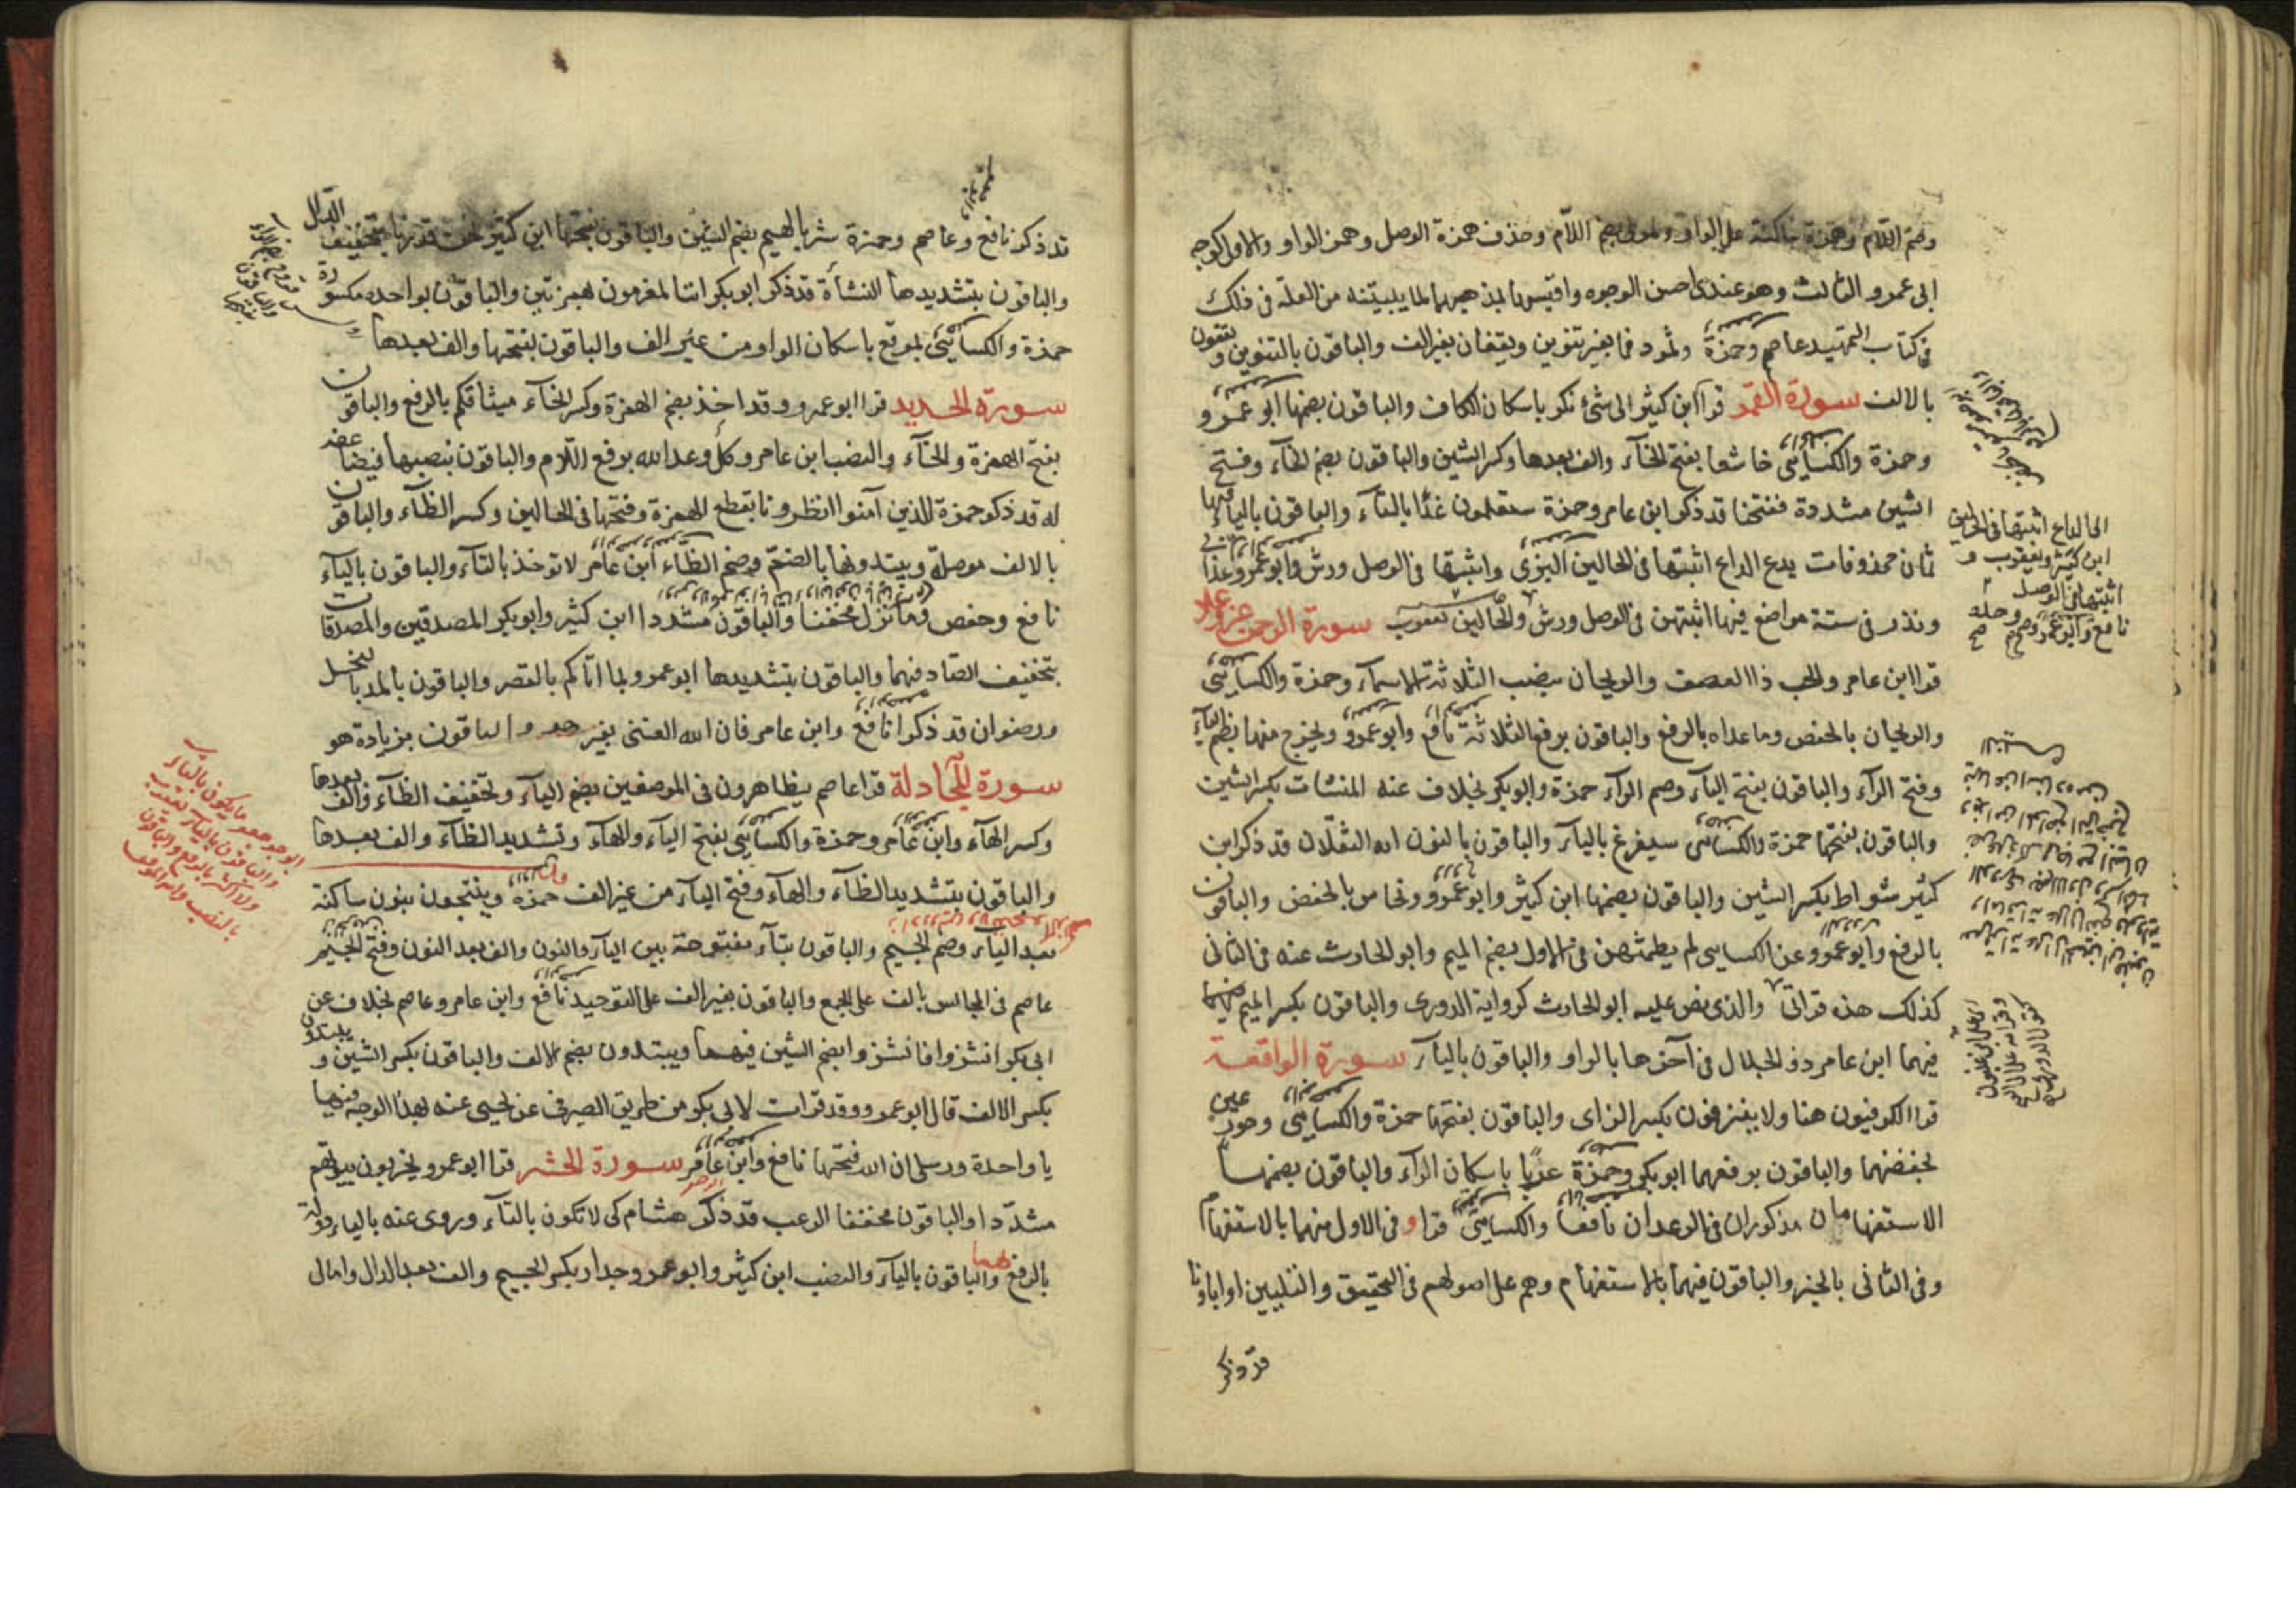 وضم اللام وهمزة ساكنة على الواو ولولى بضم اللام وحذف همزة الوصل وهمز الواو والاولى كوجه
ابى عمرو الثالث وهو عندى احسن الوجوه واقيسها لمذهبهما لما بيّنته من العلة فى ذلك
فى كتاب التمهيد عاصم وحمزة وثمود فما بغير تنوين ويقفان بغير الف والباقون بالتنوين ويقفون
بالالف سورة القمر قرا ابن كثير الى شئ نكر باسكان الكاف والباقون بضمها ابو عمرو
وحمزة والكسائى خاشعا بفتح الخآء والف بعدها وكسر الشين والباقون بضم الخآء وفتح
الشين مشددة ففتحنا قد ذكر ابن عامر وحمزة ستعلمون غدًا بالتآء والباقون باليآء فيها
ثمان محذوفات يدع الداع اثبتها فى الحالين البزى واثبتها فى الوصل ورش وابو عمرو
ونذر فى ستة مواضع فيها اثبتهن فى الوصل ورش والحالين يعقوب سورة الرحمن عز وعلا
قرا ابن عامر والحب ذا العصف والريحان بنصب الثلاثة الاسمآء وحمزة والكسائى
والريحان بالخفض وما عداه بالرفع والباقون برفع الثلاثة نافع وابو عمرو ويخرج منهما بضم اليآء
وفتح الرآء والباقون بفتح اليآء وضم الرآء حمزة وابو بكر بخلاف عنه المنشات بكسر الشين
والباقون بفتحها حمزة والكسائى سيفرغ باليآء والباقون بالنون ايه الثقلان قد ذكر ابن
كثير شواظ بكسر الشين والباقون بضمها ابن كثير وابو عمرو ونحاس بالخفض والباقون
بالرفع وابو عمرو عن الكسائى لم يطمثهن فى الاول بضم الميم وابو الحارث عنه فى الثانى
كذلك هذه قراتى والذى نص عليه ابو الحارث كرواية الدورى والباقون بكسر الميم فيهما
فيهما ابن عامر ذو الجلال فى آخرها بالواو والباقون باليآء سورة الواقعة
قرا الكوفيون هنا ولا ينزفون بكسر الزاى والباقون بفتحها حمزة والكسائى وحور عين
بخفضهما والباقون برفعهما ابو بكر وحمزة عربا باسكان الرآء والباقون بضمها
الاستفهامان مذكوران فى الرعد ان نافعا والكسائى قراو فى الاول منهما بالاستفهام
وفى الثانى بالخبر والباقون فيهما بالاستفهام وهم على اصولهم فى التحقيق والتليين او اباونا
قد ذكر
الى الداع اثبتها فى الحالين
ابن كثير ويعقوب و
اثبتها فى الوصل
نافع وابو عمرو
قد ذكر نافع وعاصم وحمزة شرب الهيم بضم الشين والباقون بفتحها ابن كثير نحن قدرنا بتخفيف الدال
والباقون بتشديدها النشأة قد ذكر ابو بكر ائنا لمغرمون بهمزتين والباقون بواحدة مكسورة
حمزة والكسائى بموقع باسكان الواو من غير الف والباقون بفتحها والف بعدها
سورة الحديد قرا ابو عمرو وقد اخذ بضم الهمزة وكسر الخآء ميثاقكم بالرفع والباقون
بفتح الهمزة والخآء والنصب ابن عامر وكل وعد الله برفع اللام والباقون بنصبها فيضاعفه
له قد ذكر حمزة للذين آمنوا انظرونا بقطع الهمزة وفتحها فى الحالين وكسر الظآء والباقون
بالالف موصلة ويبتدونها بالضم وضم الظآء ابن عامر لا توخذ بالتآء والباقون باليآء
نافع وحفص وما نزل مخففا والباقون مشددا ابن كثير وابو بكر المصدقين والمصدقات
بتخفيف الصاد فيهما والباقون بتشديدها ابو عمرو بما اتاكم بالقصر والباقون بالمد بالبخل
ورضوان قد ذكرا نافع وابن عامر فان الله الغنى بغير هو والباقون بزيادة هو
سورة المجادلة قرا عاصم يظاهرون فى الموضعين بضم اليآء وتخفيف الظآء والف بعدها
وكسر الهآء وابن عامر وحمزة والكسائى بفتح اليآء والهآء وتشديد الظآء والف بعدها
والباقون بتشديد الظآء والهآء وفتح اليآء من غير الف حمزة وينتجون بنون ساكنة
بعد اليآء وضم الجيم والباقون بتآء مفتوحة بين اليآء والنون والف بعد النون وفتح الجيم
عاصم فى المجالس بالف على الجمع والباقون بغير الف على التوحيد نافع وابن عامر وعاصم بخلاف عن
ابى بكر انشزوا فانشزوا بضم الشين فيهما ويبتدون بضم الالف والباقون بكسر الشين ويبتدون
بكسر الالف قال ابو عمرو وقد قرات لابى بكر من طريق الصريفى عن يحيى عنه بهذا الوجه فيها
يا واحدة ورسلى ان الله فتحها نافع وابن عامر سورة الحشر قرا ابو عمرو يخربون بيوتهم
مشددا والباقون مخففا الرعب قد ذكر هشام كى لا تكون بالتآء وروى عنه باليآء دولة
بالرفع والباقون باليآء والنصب ابن كثير وابو عمرو جدار بكسر الجيم والف بعد الدال وامال